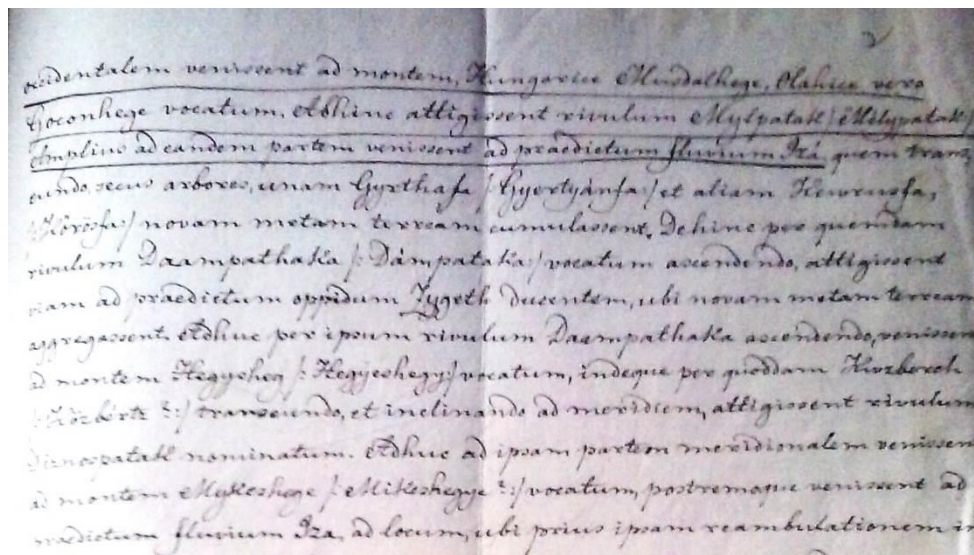 2
occidentalem venissent ad montem, Hungarice Mundalhege, Olahice vero
Goconhege vocatum. Abhinc attigissent rivulum Mylpatak /:Mélypatak:/
Amplius ad eandem partem venissent ad praedictum fluvium Iza quem trans
eundo, secus arbores, unam Gyrthafa /:Gyertyánfa:/ et aliam Kewrusfa,
/:Körösfa:/ novam metam terream cumulassent. Dehinc per quendam
rivulum Daampathaka /:Dámpataka:/ vocatum ascendendo, attigissent
viam ad praedictum oppidum Zygeth ducentem, ubi novam metam terream
aggregassent. Adhuc per ipsum rivulum Daampathaka ascendendo, venissent
ad montem Hegyesheg /:Hegyeshegy:/ vocatum, indeque per quoddam Kwzberch
/:Közbércz?:/ transeundo, et inclinando ad meridiem, attigissent rivulum
Diznospatak nominatum. Adhuc ad ipsam partem meridionalem venissent
ad montem Mykeshege /:Mikeshegye?:/ vocatum, postremoque venissent ad
praedictum fluvium Iza, ad locum, ubi prius ipsam reambulationem in